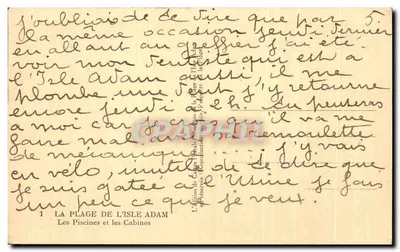 j'oubliais de te dire que par 5.
la même occasion jeudi dernier
en allant au greffier j'ai été
voir mon dentiste qui est à
l'Isle Adam aussi, il me
plombe une dent j'y retourne
encore jeudi à 2h. tu penseras
à moi car je crois qu'il va me
faire mal moulette
de mécanique j'y vais
en vélo, inutile de te dire que
je suis gatée à l'Usine je fais
un peu ce que je veux.
1 LA PLAGE DE L'ISLE ADAM
Les Piscines et les Cabines
CPAPHIL